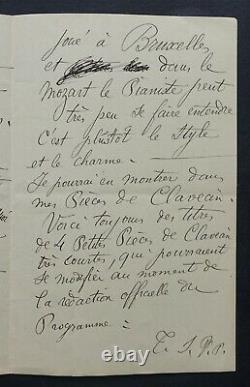 joué à Bruxelles
et dans le
Mozart le Pianiste peut
très peu se faire entendre
C'est plustôt le Style
et le charme.
Je pourrai en montrer dans
mes Pièces de Clavecin.
Voici toujours des titres
de 4 Petites Pièces de Clavecin
très courtes, qui pourraient
se modifier au moment de
la rédaction officielle du
Programme:
T. S. P. P.
© ebay.com